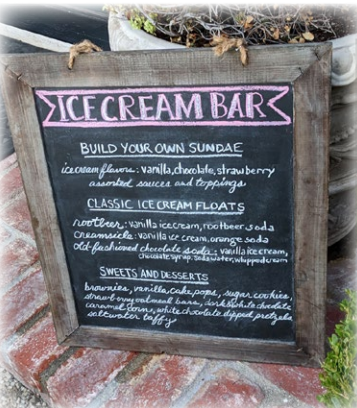 ICE CREAM BAR
BUILD YOUR OWN SUNDAE
ice cream flavors: vanilla, chocolate, strawberry
assorted sauces and toppings
CLASSIC ICE CREAM FLOATS
rootbeer: vanilla ice cream, rootbeer soda
creamsicle: vanilla ice cream, orange soda
old-fashioned chocolate soda: vanilla ice cream,
chocolate syrup, soda water, whipped cream
SWEETS AND DESSERTS
brownies, vanilla cake pops, sugar cookies,
strawberry oatmeal bars, dark & white chocolate
caramel corn, white chocolate dipped pretzels
saltwater taffy